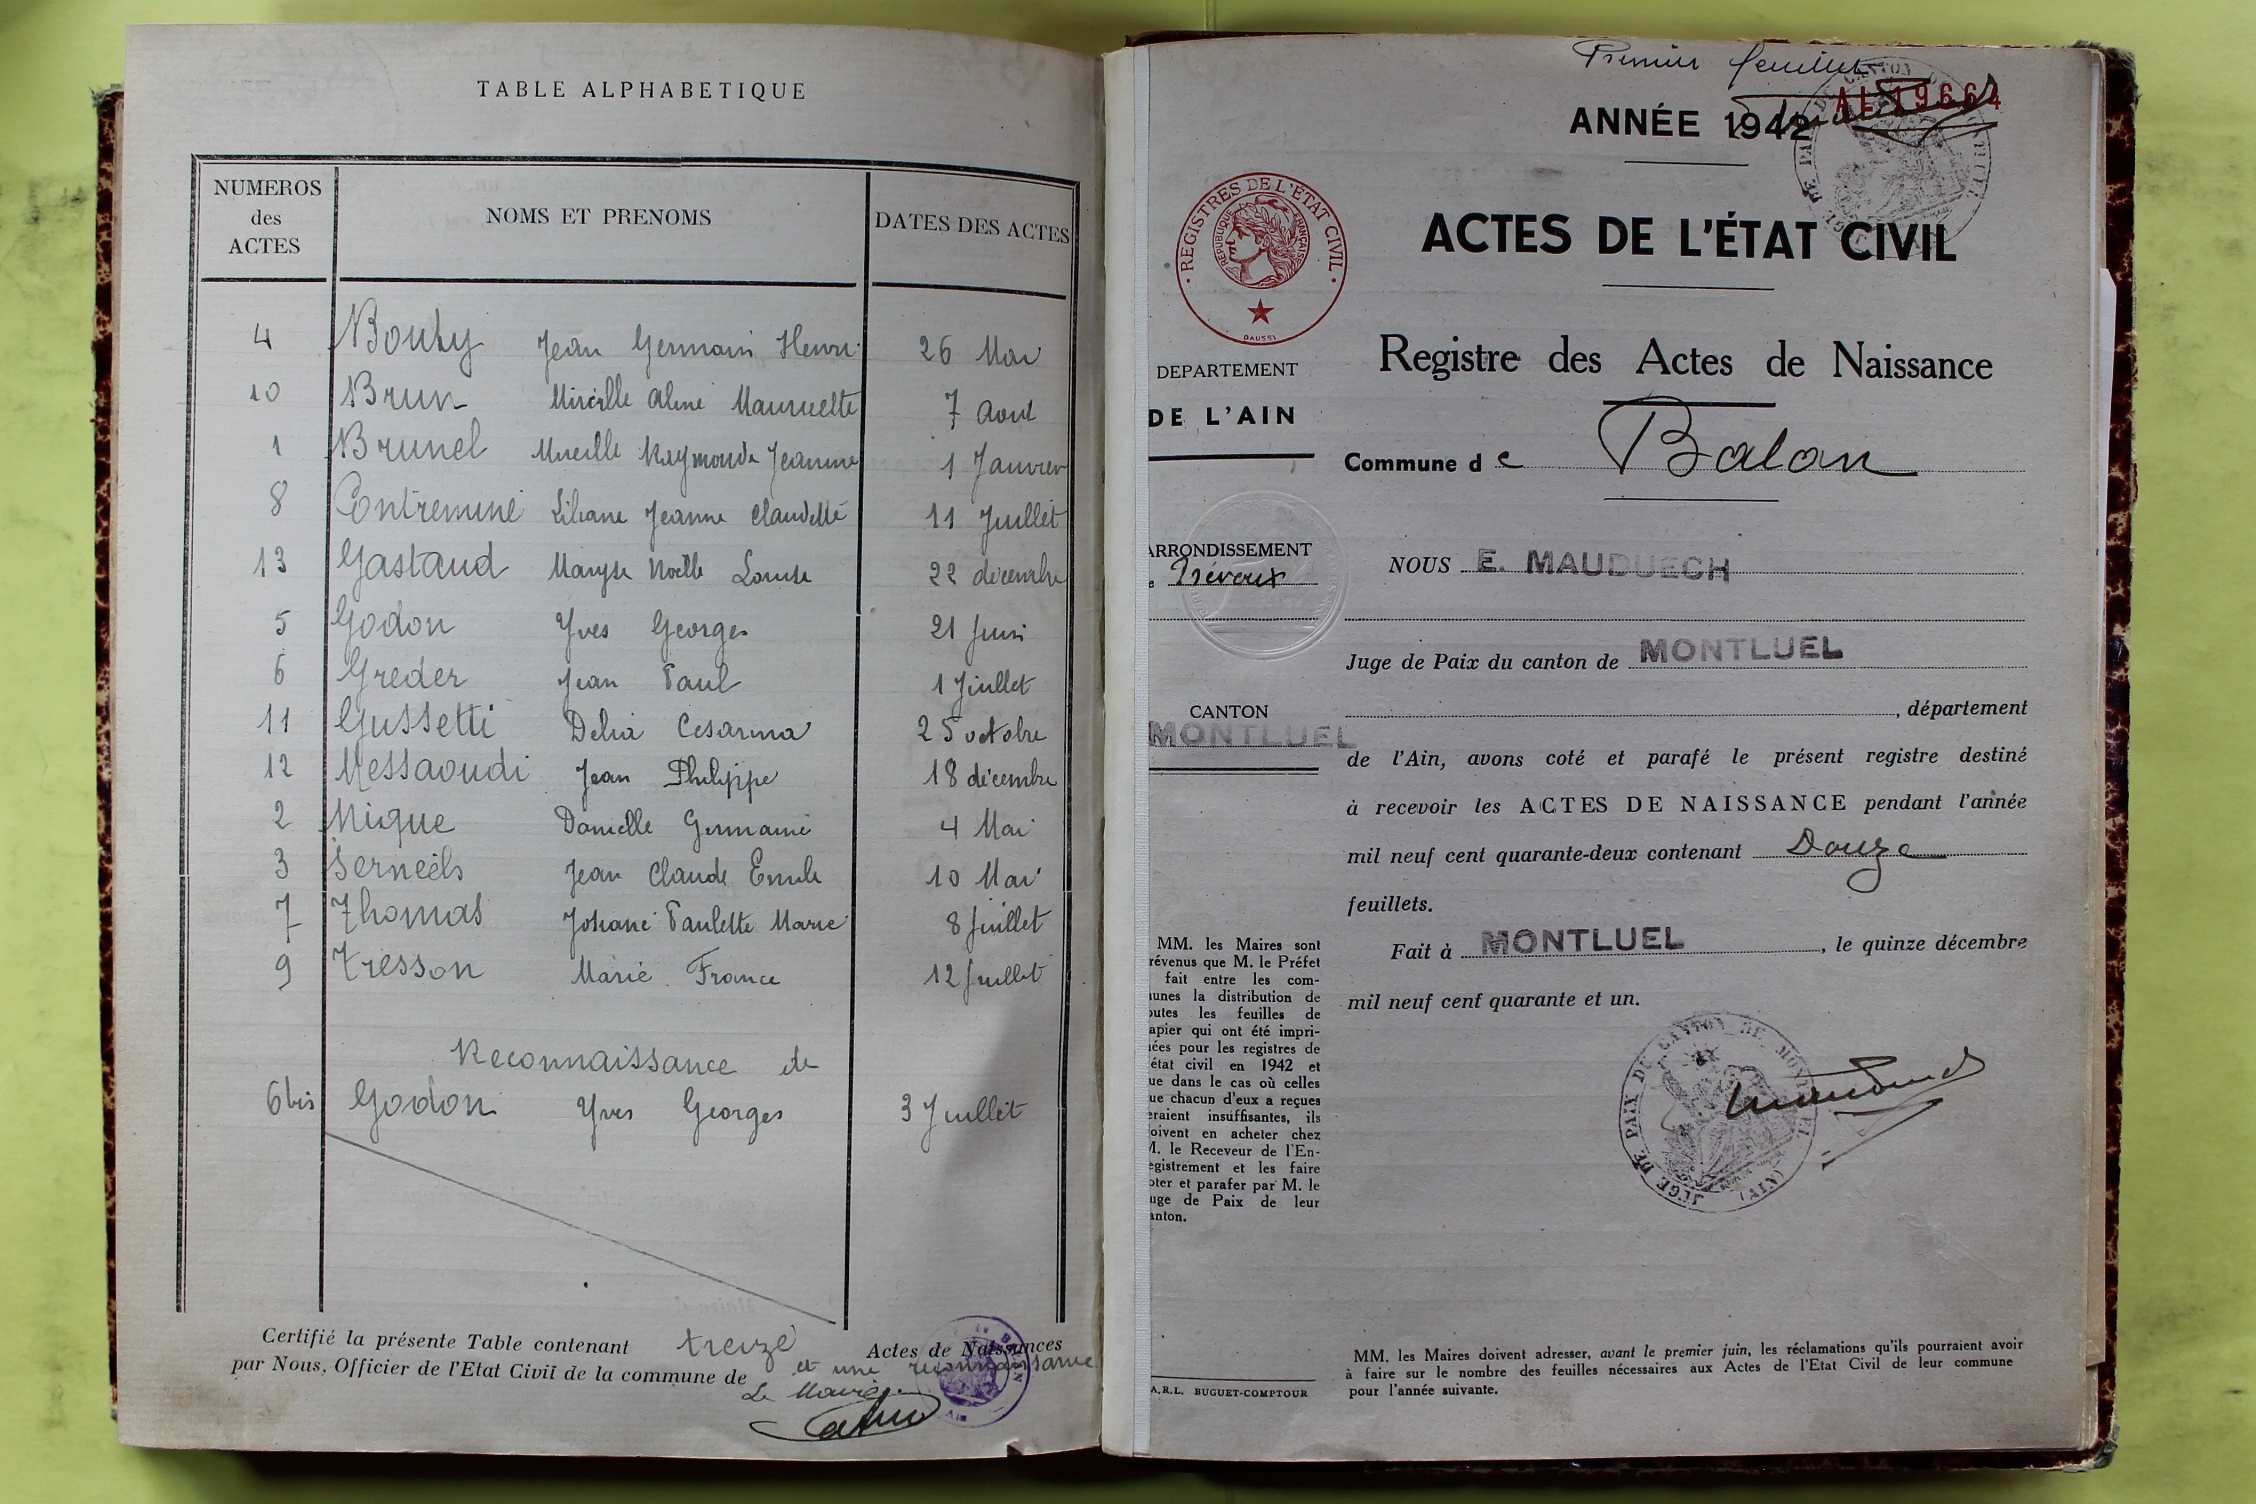 TABLE ALPHABETIQUE
NUMEROS des ACTES NOMS ET PRENOMS DATES DES ACTES
4 Bouhy Jean Germain Henri 26 Mai
10 Brun Mireille Aline Mauricette 7 Aout
1 Brunel Mireille Raymonde Jeanine 1 Janvier
8 Contremine Liliane Jeanne Claudette 11 Juillet
13 Gastaud Maryse Noëlle Louise 22 décembre
5 Godon Yves Georges 21 Juin
6 Greder Jean Paul 1 Juillet
11 Gussetti Delia Cesarina 25 octobre
12 Messaoudi Jean Philippe 18 décembre
2 Mique Danielle Germaine 4 Mai
3 Serneels Jean Claude Emile 10 Mai
7 Thomas Josiane Paulette Marie 8 Juillet
9 Tresson Marie France 12 Juillet
Reconnaissance de
6 bis Godon Yves Georges 3 Juillet
Certifié la présente Table contenant treize Actes de Naissances
et une reconnaissance
par Nous, Officier de l'Etat Civil de la commune de
Le Maire
Premier feuillet
AL 19664
ANNÉE 1942
ACTES DE L'ÉTAT CIVIL
REGISTRES DE L'ÉTAT CIVIL
REPUBLIQUE FRANÇAISE
DAUSSI
Registre des Actes de Naissance
DEPARTEMENT
DE L'AIN
Commune de Balan
ARRONDISSEMENT
Trévoux
NOUS E. MAUDUECH
Juge de Paix du canton de MONTLUEL
CANTON
MONTLUEL
, département
de l'Ain, avons coté et parafé le présent registre destiné
à recevoir les ACTES DE NAISSANCE pendant l'année
mil neuf cent quarante-deux contenant Douze
feuillets.
Fait à MONTLUEL, le quinze décembre
mil neuf cent quarante et un.
JUGE DE PAIX DU CANTON DE MONTLUEL (AIN)
MM. les Maires sont
révenus que M. le Préfet
fait entre les com-
unes la distribution de
outes les feuilles de
apier qui ont été impri-
ées pour les registres de
état civil en 1942 et
ue dans le cas où celles
ue chacun d'eux a reçues
eraient insuffisantes, ils
oivent en acheter chez
M. le Receveur de l'En-
egistrement et les faire
oter et parafer par M. le
uge de Paix de leur
anton.
A.R.L. BUGUET-COMPTOUR
MM. les Maires doivent adresser, avant le premier juin, les réclamations qu'ils pourraient avoir
à faire sur le nombre des feuilles nécessaires aux Actes de l'Etat Civil de leur commune
pour l'année suivante.